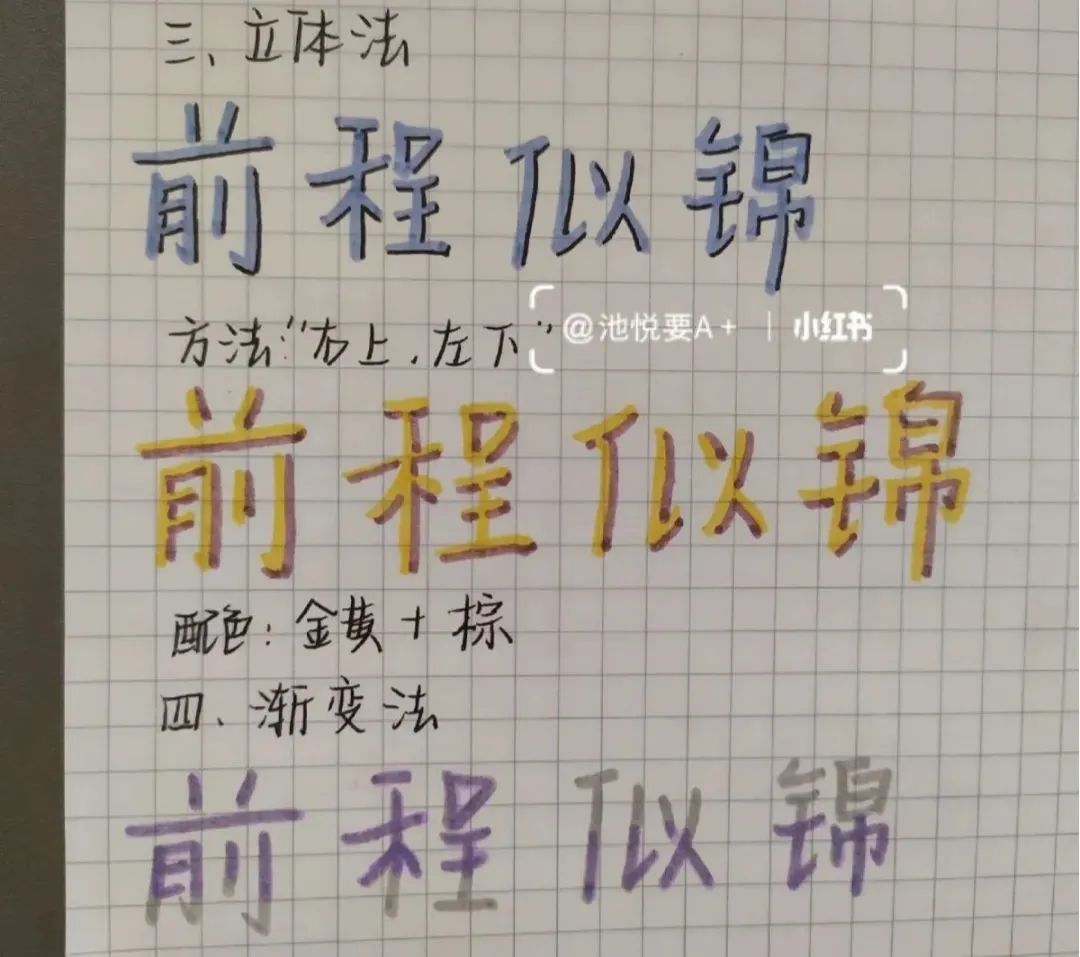 三、立体法
前程似锦
方法:"右上,左下"
@池悦要A+ | 小红书
前程似锦
配色:金黄+棕
四、渐变法
前程似锦